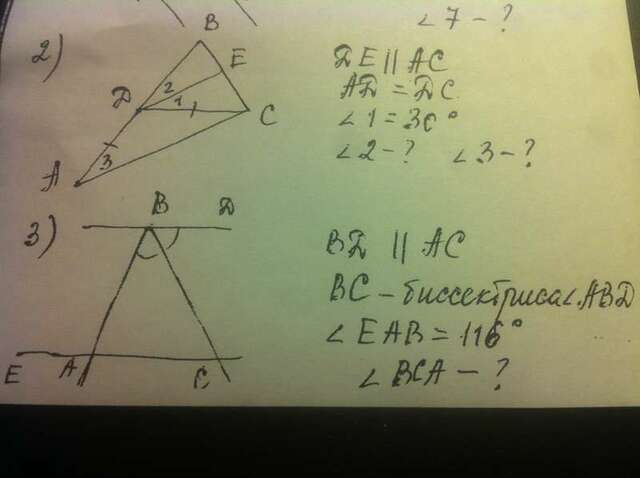 ∠7 - ?
2)
B
E
D
2
1
C
3
A
DE || AC
AD = DC
∠1 = 30°
∠2 - ? ∠3 - ?
3)
B D
E A C
BD || AC
BC - биссектриса ∠ABD
∠EAB = 116°
∠BCA - ?